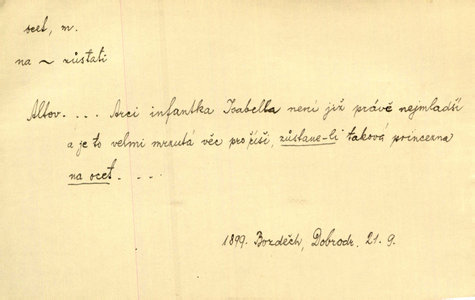 ocet, m.
na ~ zůstati
Altov. . . . Arci infantka Isabella není již právě nejmladší
a je to velmi mrzutá věc pro říši, zůstane-li taková princezna
na ocet. . . .
1899. Bozděch, Dobrodr. 21. 9.